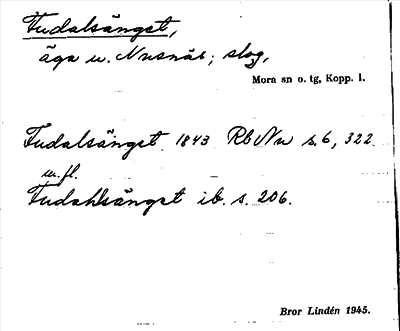 Tudalsängst,
äga u. Nusnäs; slog,
Mora sn o. tg, Kopp. l.
Tudalsängst 1843 Rb Nu s. 6, 322
m. fl.
Tudahlsängst ib. s. 206.
Bror Lindén 1945.